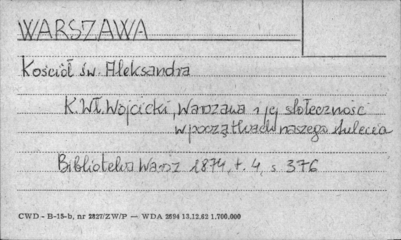 WARSZAWA
Kościół św. Aleksandra
K. Wł. Wojcicki, Warszawa i jej społeczność
w początkach naszego stulecia
Biblioteka Warsz 1874, t. 4, s 376
CWD - B-15-b, nr 2827/ZW/P — WDA 2694 13.12.62 1.700.000